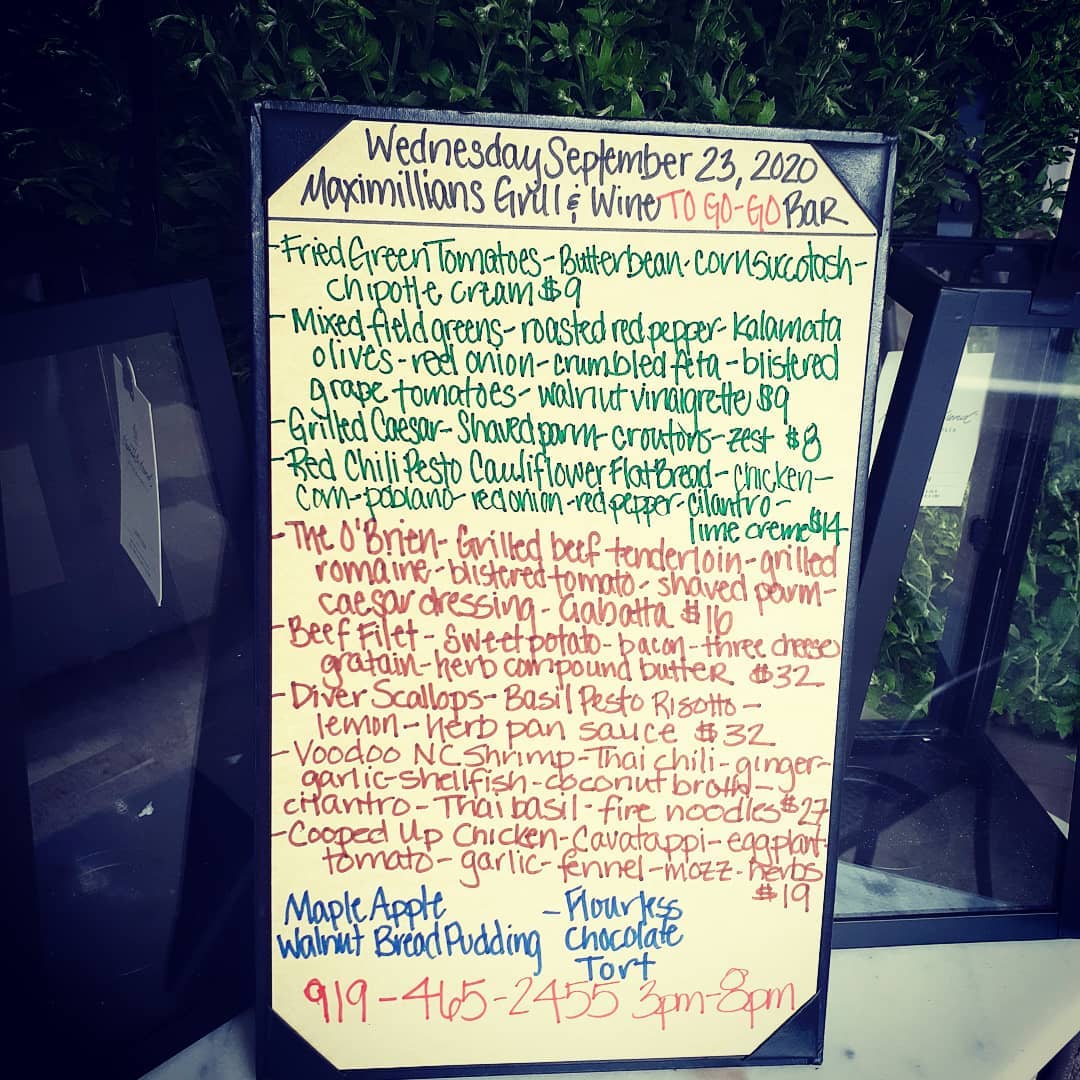 Wednesday September 23, 2020
Maximillians Grill & Wine TO GO-GO BAR
-Fried Green Tomatoes-Butterbean-corn succotash-
chipotle cream $9
-Mixed field greens-roasted red pepper-Kalamata
olives-red onion-crumbled feta-blistered
grape tomatoes-walnut vinaigrette $9
-Grilled Caesar-Shaved parm-croutons-zest $8
-Red Chili Pesto Cauliflower FlatBread-chicken-
corn-poblano-red onion-red pepper-cilantro-
lime creme $14
-The O'Brien-Grilled beef tenderloin-grilled
romaine-blistered tomato-shaved parm-
caesar dressing-Ciabatta $16
-Beef Filet-Sweet potato-bacon-three cheese
gratain-herb compound butter $32
-Diver Scallops-Basil Pesto Risotto-
lemon-herb pan sauce $32
-Voodoo NC Shrimp-Thai chili-ginger-
garlic-shellfish-coconut broth-
cilantro-Thai basil-fire noodles $27
-Cooped Up Chicken-Cavatappi-eggplant-
tomato-garlic-fennel-mozz-herbs
$19
Maple Apple
Walnut Bread Pudding
-Flourless
Chocolate
Tort
919-465-2455 3pm-8pm